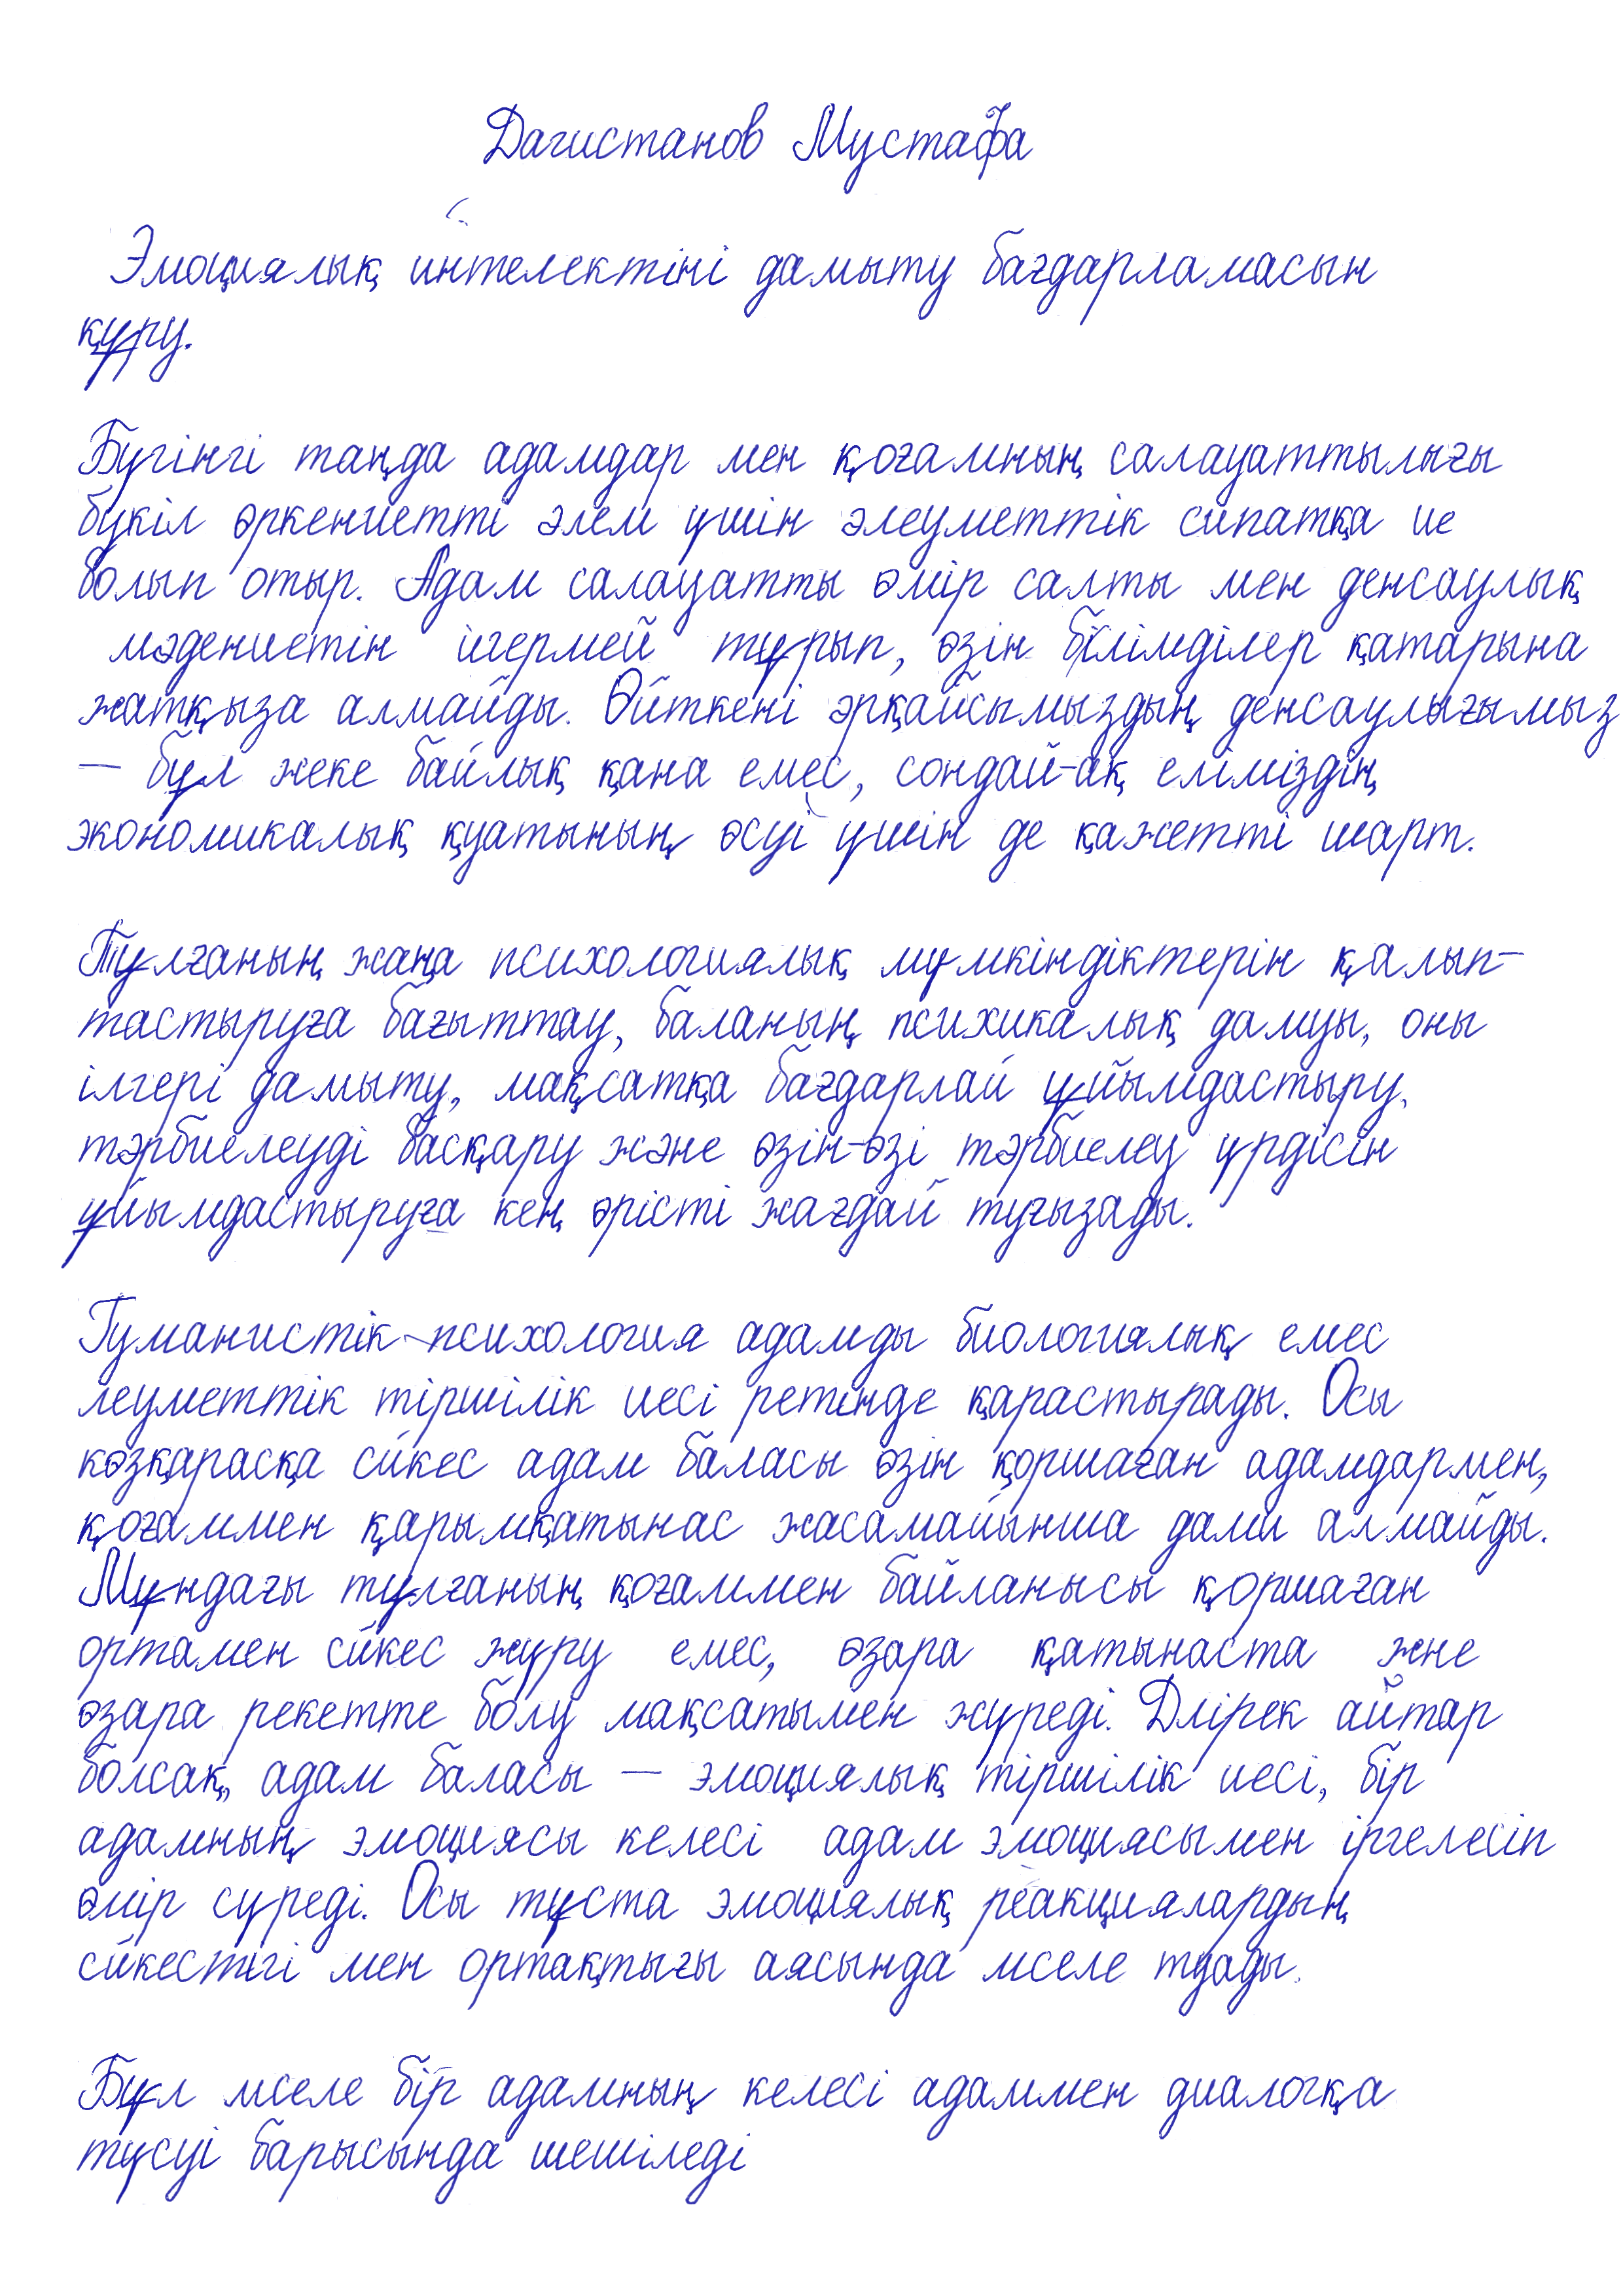 Дагистанов Мустафа
Эмоциялық интелектіні дамыту бағдарламасын
құру.
Бүгінгі таңда адамдар мен қоғамның салауаттылығы
бүкіл өркениетті әлем үшін әлеуметтік сипатқа ие
болып отыр. Адам салауатты өмір салты мен денсаулық
мәдениетін игермей тұрып, өзін білімділер қатарына
жатқыза алмайды. Өйткені әрқайсымыздың денсаулығымыз
– бұл жеке байлық қана емес, сондай-ақ еліміздің
экономикалық қуатының өсуі үшін де қажетті шарт.
Тұлғаның жаңа психологиялық мүмкіндіктерін қалып-
тастыруға бағыттау, баланың психикалық дамуы, оны
ілгері дамыту, мақсатқа бағдарлай ұйымдастыру,
тәрбиелеуді басқару және өзін-өзі тәрбиелеу үрдісін
ұйымдастыруға кең өрісті жағдай туғызады.
Гуманистік психология адамды биологиялық емес
леуметтік тіршілік иесі ретінде қарастырады. Осы
көзқарасқа сйкес адам баласы өзін қоршаған адамдармен,
қоғаммен қарымқатынас жасамайынша дами алмайды.
Мұндағы тұлғаның қоғаммен байланысы қоршаған
ортамен сйкес жүру емес, өзара қатынаста жне
өзара рекетте болу мақсатымен жүреді. Длірек айтар
болсақ, адам баласы – эмоциялық тіршілік иесі, бір
адамның эмоциясы келесі адам эмоциясымен іргелесіп
өмір сүреді. Осы тұста эмоциялық реакциялардың
сйкестігі мен ортақтығы аясында мселе туады.
Бұл мселе бір адамның келесі адаммен диалогқа
түсуі барысында шешіледі